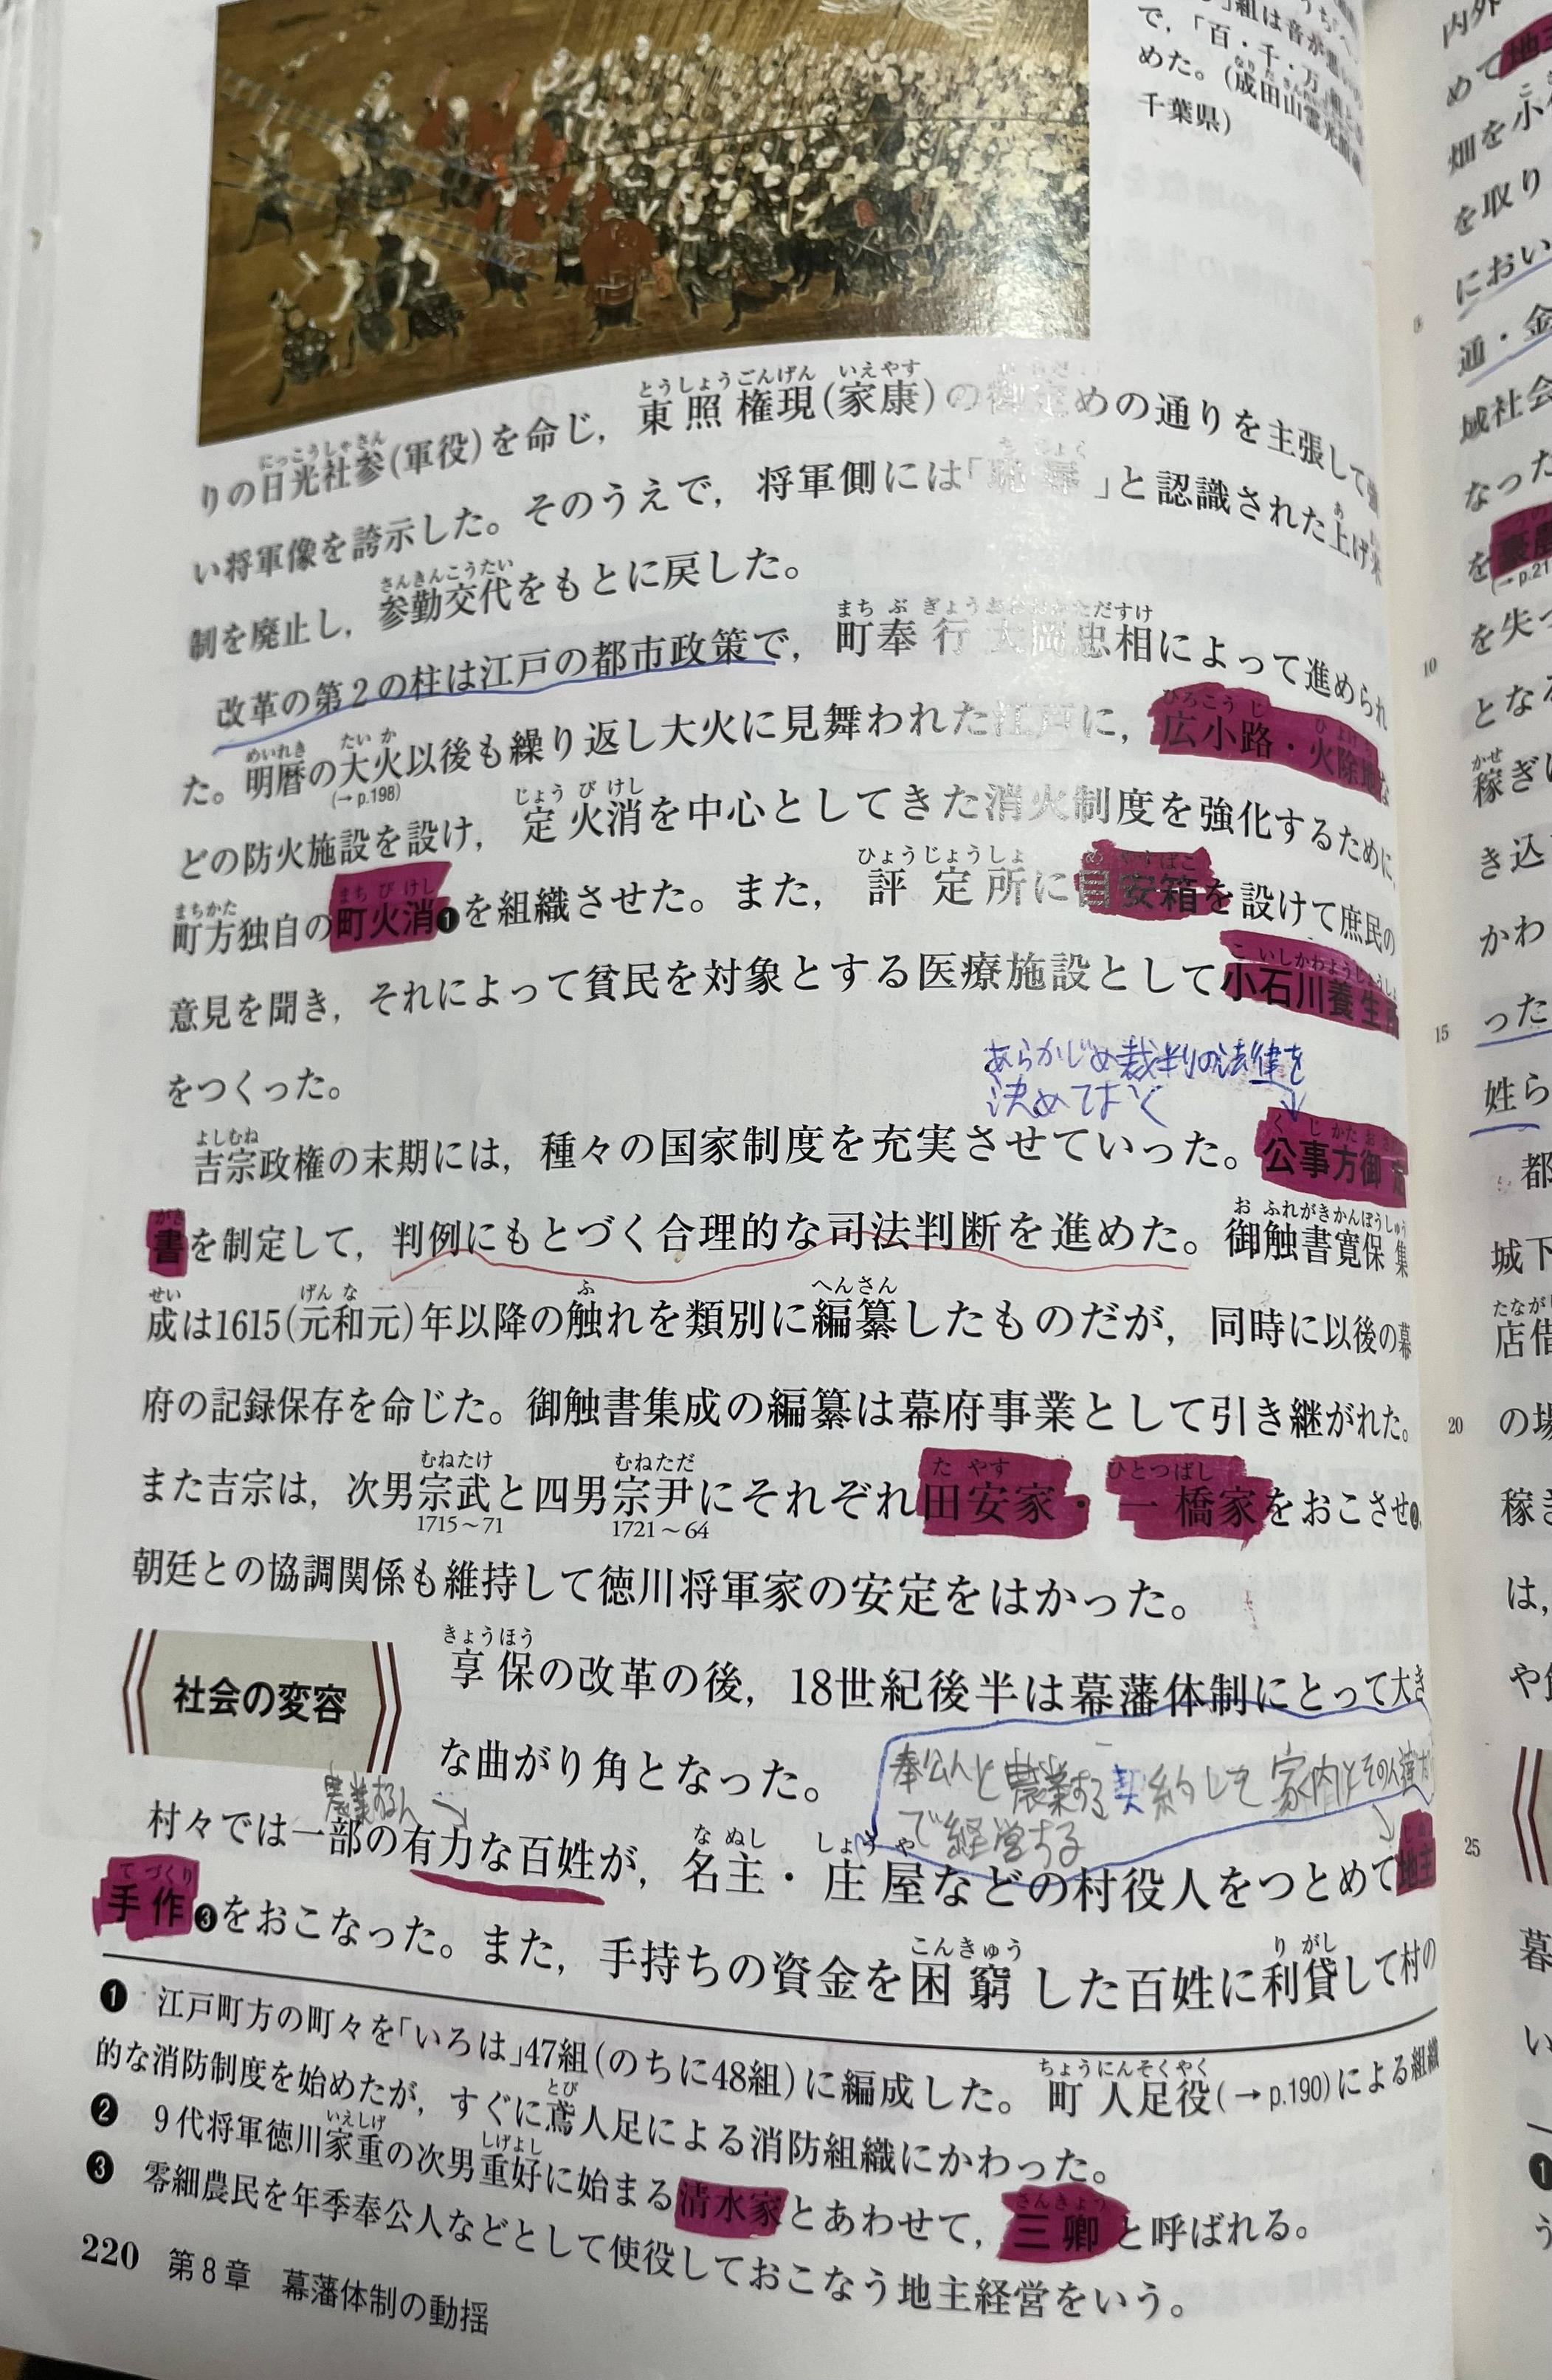 で,「百・千・万」組とさ
めた。(成田山霊光館蔵
千葉県)
りの日光社参(軍役)を命じ,東照権現(家康)の御定めの通りを主張して強
い将軍像を誇示した。そのうえで,将軍側には「恥辱」と認識された上げ米
制を廃止し,参勤交代をもとに戻した。
改革の第2の柱は江戸の都市政策で,町奉行大岡忠相によって進められ
た。明暦の大火以後も繰り返し大火に見舞われた江戸に,広小路・火除地な
(→p.198)
どの防火施設を設け,定火消を中心としてきた消火制度を強化するために,
町方独自の町火消❶を組織させた。また,評定所に目安箱を設けて庶民の
意見を聞き,それによって貧民を対象とする医療施設として小石川養生所
をつくった。
あらかじめ裁判の法律を
決めておく
吉宗政権の末期には,種々の国家制度を充実させていった。公事方御定
書を制定して,判例にもとづく合理的な司法判断を進めた。御触書寛保集
成は1615(元和元)年以降の触れを類別に編纂したものだが,同時に以後の幕
府の記録保存を命じた。御触書集成の編纂は幕府事業として引き継がれた。
また吉宗は,次男宗武と四男宗尹にそれぞれ田安家・一橋家をおこさせ❷,
1715~71 1721~64
朝廷との協調関係も維持して徳川将軍家の安定をはかった。
社会の変容
享保の改革の後,18世紀後半は幕藩体制にとって大き
な曲がり角となった。
奉公人と農業する契約して家内とその人達だけ
で経営する
農業する人
村々では一部の有力な百姓が,名主・庄屋などの村役人をつとめて地主
手作❸をおこなった。また,手持ちの資金を困窮した百姓に利貸して村の
❶ 江戸町方の町々を「いろは」47組(のちに48組)に編成した。町人足役(→p.190)による組織
的な消防制度を始めたが,すぐに鳶人足による消防組織にかわった。
❷ 9代将軍徳川家重の次男重好に始まる清水家とあわせて,三卿と呼ばれる。
❸ 零細農民を年季奉公人などとして使役しておこなう地主経営をいう。
220 第8章 幕藩体制の動揺
内外
めて地主
畑を小
を取り
におい
通・金
域社会
なった
を豪農
(→p.21
を失っ
10
となる
稼ぎに
き込
かわ
15
った
姓ら
都
城下
店借
20
の場
稼ぎ
は,
や
25
暮
い
❶
う